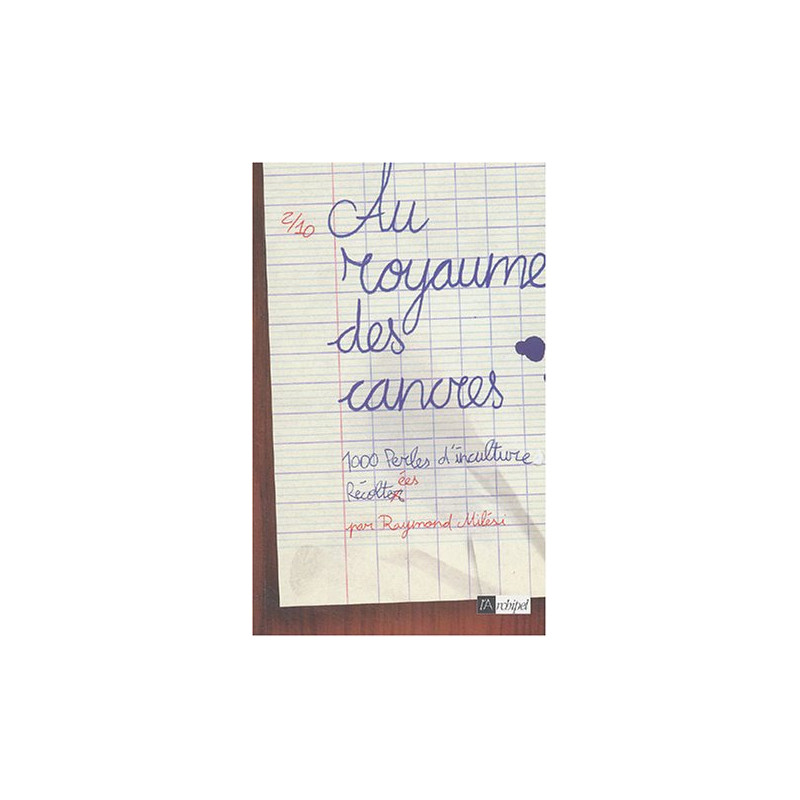 2/10
Au
royaume
des
cancres
1000 Perles d'inculture
Récolter ées
par Raymond Milési
l'Archipel